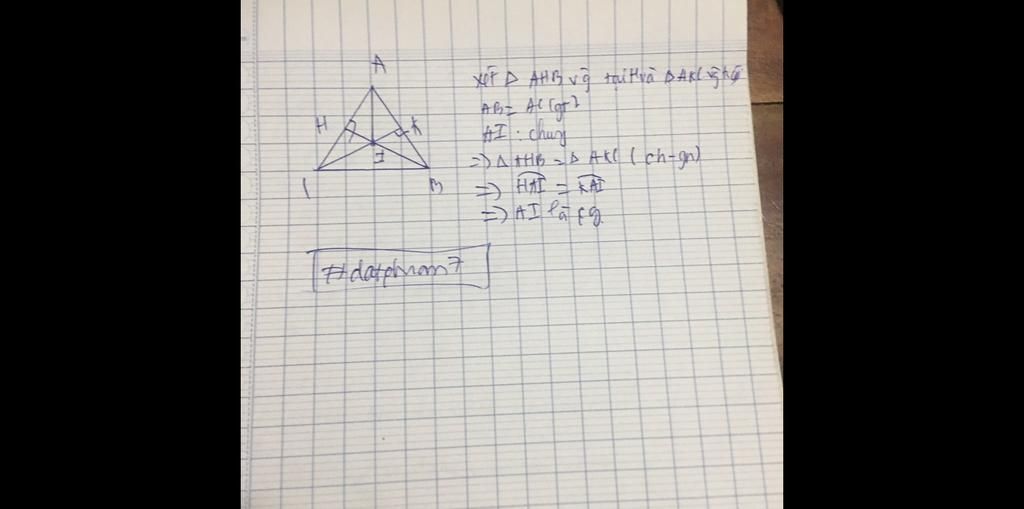 A
H
K
I
C
B
xét Δ AHB vg tại H và Δ AKC vg
AB = AC (gt)
AI : chung
=> Δ AHB = Δ AKC (ch-gn)
=> HAI = KAI
=> AI là fg.
#datphram7